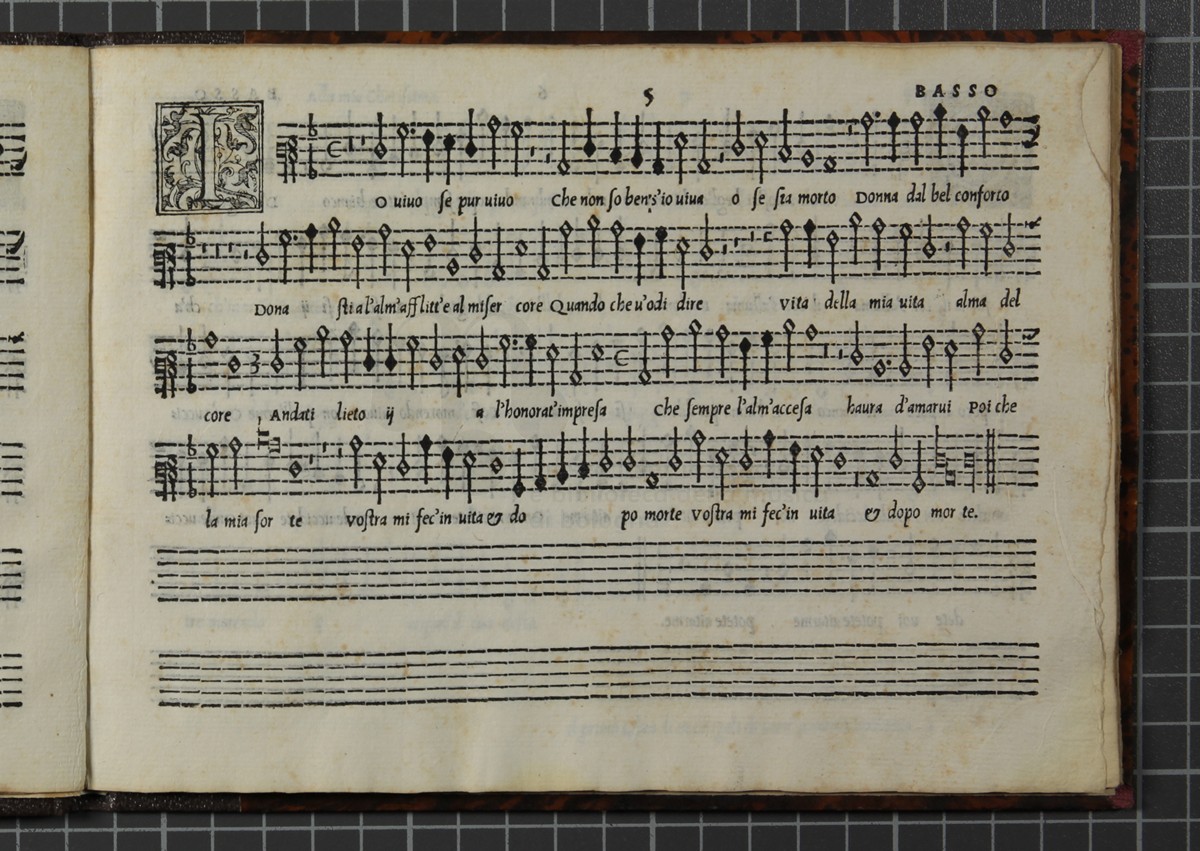 5 BASSO
IO uiuo se pur uiuo Che non so ben s'io uiua o se sia morto Donna dal bel conforto
Dona sti a l'alm'afflitt'e al miser core Quando che u'odi dire vita della mia uita alma del
core , Andati lieto ij a l'honorat'impresa Che sempre l'alm'accesa haura d'amarui Poi che
la mia sor te vostra mi fec'in uita & do po morte vostra mi fec'in uita & dopo mor te.